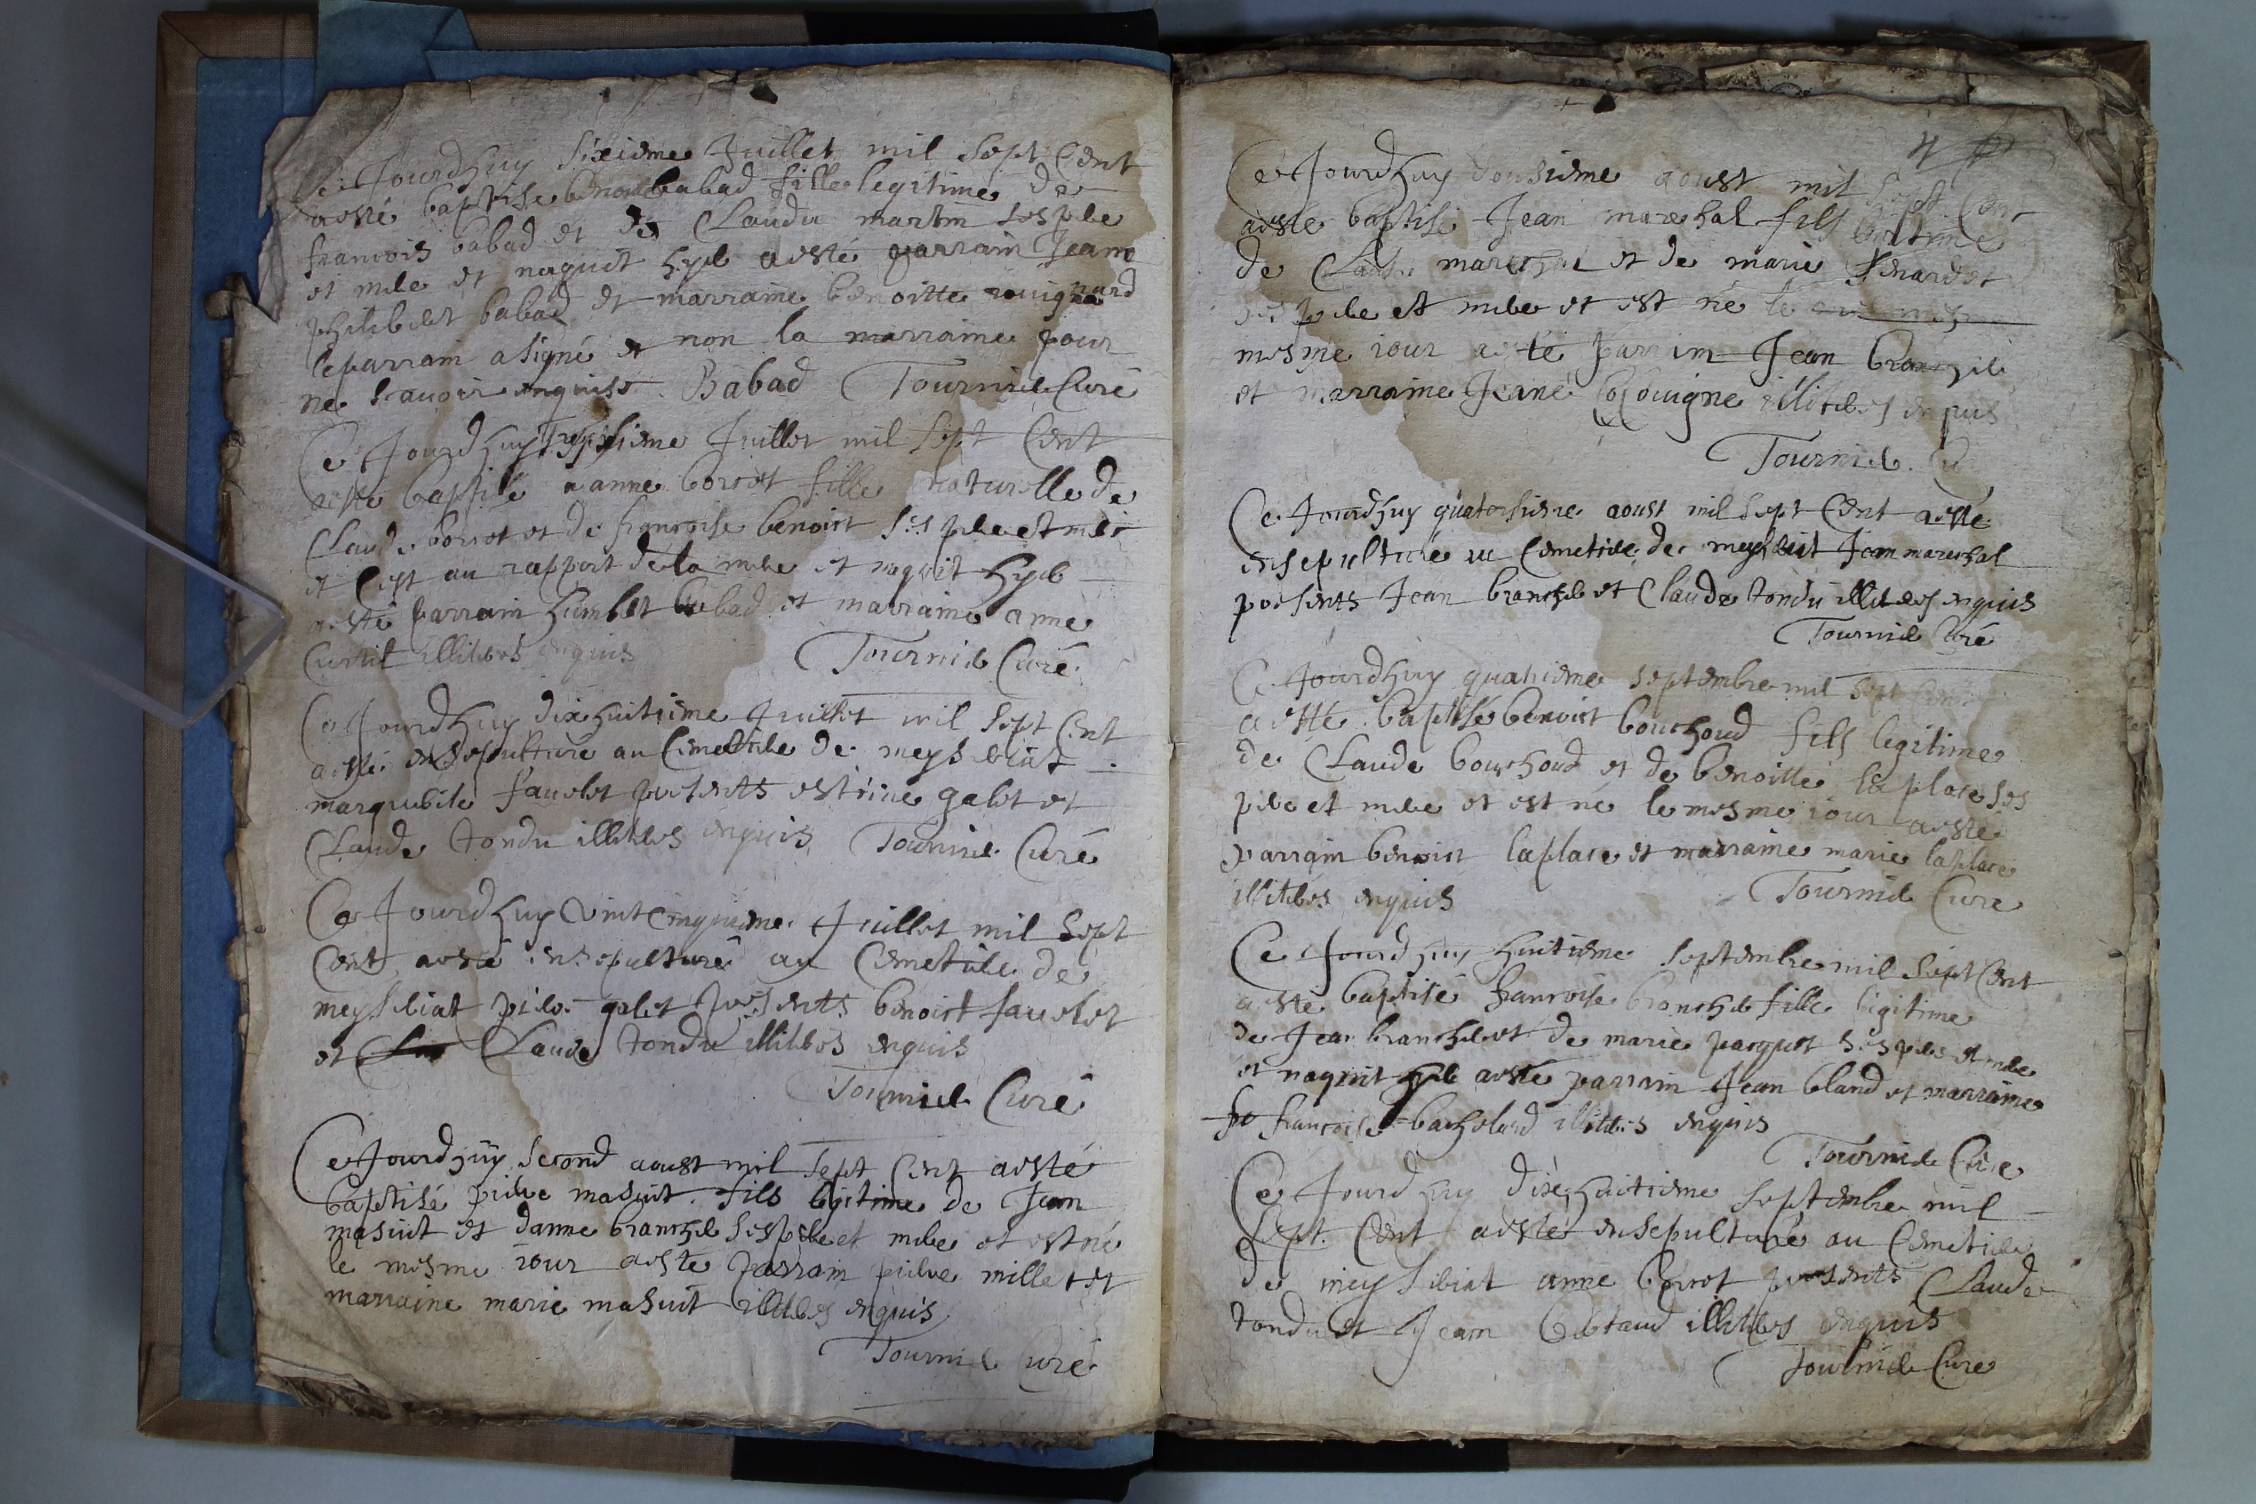 Ce Jourdhuy sixieme Juillet mil sept Cent
a esté baptise benoite babad fille legitime de
francois babad et de Claudu martin ses pere
et mere et naquit hyer a esté parrain Jean
philibert babad et marraine benoitte
le parrain a signé et non la marraine pour
ne scavoir enquise Babad Tournier Curé
Ce Jourdhuy Juillet mil sept Cent
a esté baptisé anne borrot fille naturelle de
Claude borrot et de francoise benoist ses pere et mere
et c'est au rapport de la mere et naquit hyer
a esté parrain humbert babad et marraine anne
illiteres enquis Tournier Curé
Ce Jourdhuy dixhuitieme Juillet mil sept Cent
a esté ensepulturé au Cimetiere de meyseriat
fauelet presents estiene galet et
Claude tondu illiteres enquis Tournier Curé
Ce Jourdhuy vint cinquieme Juillet mil sept
Cent a esté ensepulturé au Cemetiere de
meyseriat galet presents benoist fauelet
et Claude tondu illiteres enquis
Tournier Curé
Ce Jourdhuy second aoust mil sept Cent a esté
baptisé pierre masuit fils legitime de Jean
masuit et danne brancher ses pere et mere et est né
le mesme iour a esté parrain pierre millet et
marraine marie masuit illiteres enquis
Tournier Curé
4
Ce Jourdhuy dousieme aoust mil sept Cent
a esté baptisé Jean mareshal fils legitime
de Claude mareshal et de marie
ses pere et mere et est né le
mesme iour a esté parrain Jean brancher
et marraine Jeane illiteres enquis
Tournier Cu
Ce Jourdhuy quatorsieme aoust mil sept Cent a esté
ensepulturé au Cemetiere de meyseriat Jean mareshal
presents Jean brancher et Claude tondu illiteres enquis
Tournier Curé
Ce Jourdhuy quatrieme septembre mil sept Cent
a esté baptisé benoist bouchoud fils legitime
de Claude bouchoud et de benoitte laplace ses
pere et mere et est né le mesme iour a esté
parrain benoist laplace et marraine marie laplace
illiteres enquis Tournier Cure
Ce Jourdhuy huitieme septembre mil sept Cent
a esté baptisé francoise brancher fille legitime
de Jean brancher et de marie paquet ses pere et mere
et naquit hyer a esté parrain Jean bland et marraine
fr francoise bachelard illiteres enquis
Tournier Cure
Ce Jourdhuy dixhuitieme septembre mil
sept Cent a esté ensepulturé au Cemetiere
de meyseriat anne borrot presents Claude
tondu et Jean illiteres enquis
Tournier Cure